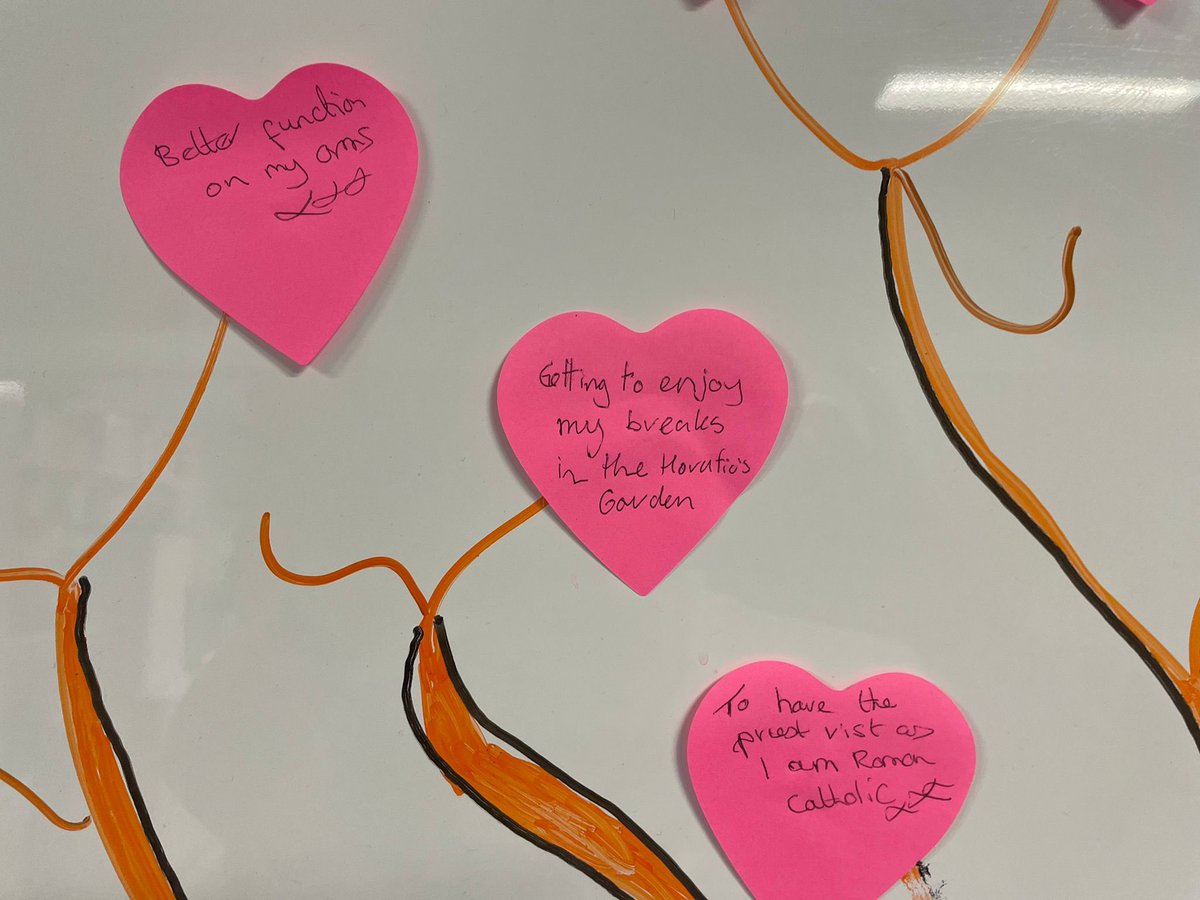 Better function
on my arms
Getting to enjoy
my breaks
in the Horatio's
Garden
To have the
priest vist as
I am Roman
Catholic